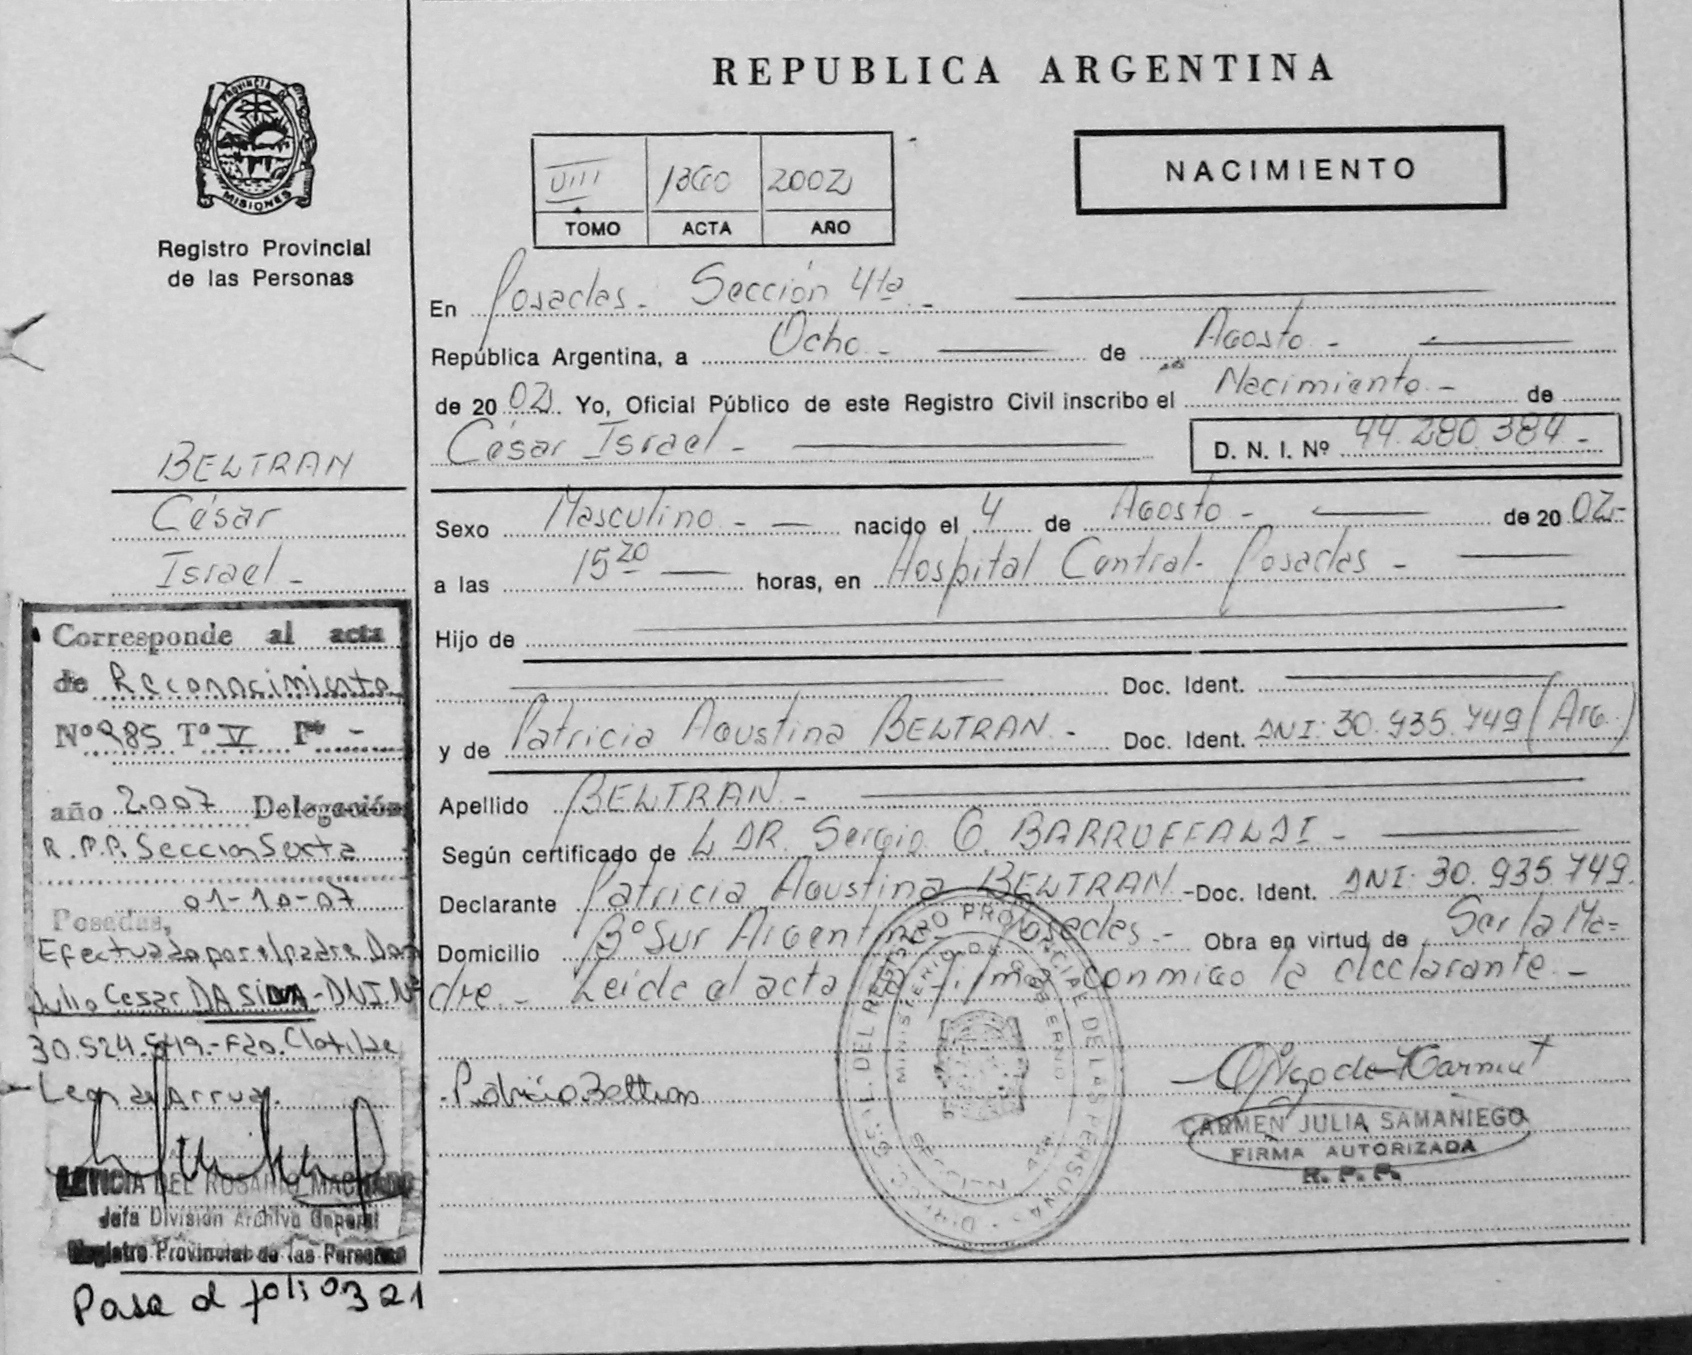 REPUBLICA ARGENTINA
PROVINCIA DE
MISIONES
Registro Provincial
de las Personas
NACIMIENTO
VIII 2002
TOMO ACTA AÑO
En Posadas - Sección 4ta -
República Argentina, a Ocho - de Agosto -
de 2002. Yo, Oficial Público de este Registro Civil inscribo el Nacimiento - de
César Israel - D. N. I. Nº 44.280.384 -
BELTRAN
César
Israel -
Sexo Masculino - nacido el 4 de Agosto - de 2002 -
a las 15 20 horas, en Hospital Central - Posadas -
Hijo de
Doc. Ident.
y de Patricia Agustina BELTRAN - Doc. Ident. DNI: 30.935.749 (Arg.)
Apellido BELTRAN -
Según certificado de L DR. Sergio O. BARRUFFALDI -
Declarante Patricia Agustina BELTRAN - Doc. Ident. DNI: 30.935.749.
Domicilio Bº Sur Argentino Posadas - Obra en virtud de Ser la Ma=
dre - Leida el acta la firma conmigo la declarante -
Patricia Beltran
CARMEN JULIA SAMANIEGO
FIRMA AUTORIZADA
R. P. P.
Corresponde al acta
de Reconocimiento
Nº 985 Tº V Fº -
año 2007 Delegación
R.P.P. Seccion Sexta
Posadas, 01-10-07
Efectuada por el padre Don
Julio Cesar DA SILVA - DNI. Nº
30.524.519.- Fdo. Clotilde
Arrua.
LETICIA DEL ROSARIO MACHADO
Jefa División Archivo General
Registro Provincial de las Personas
Pasa al folio 321